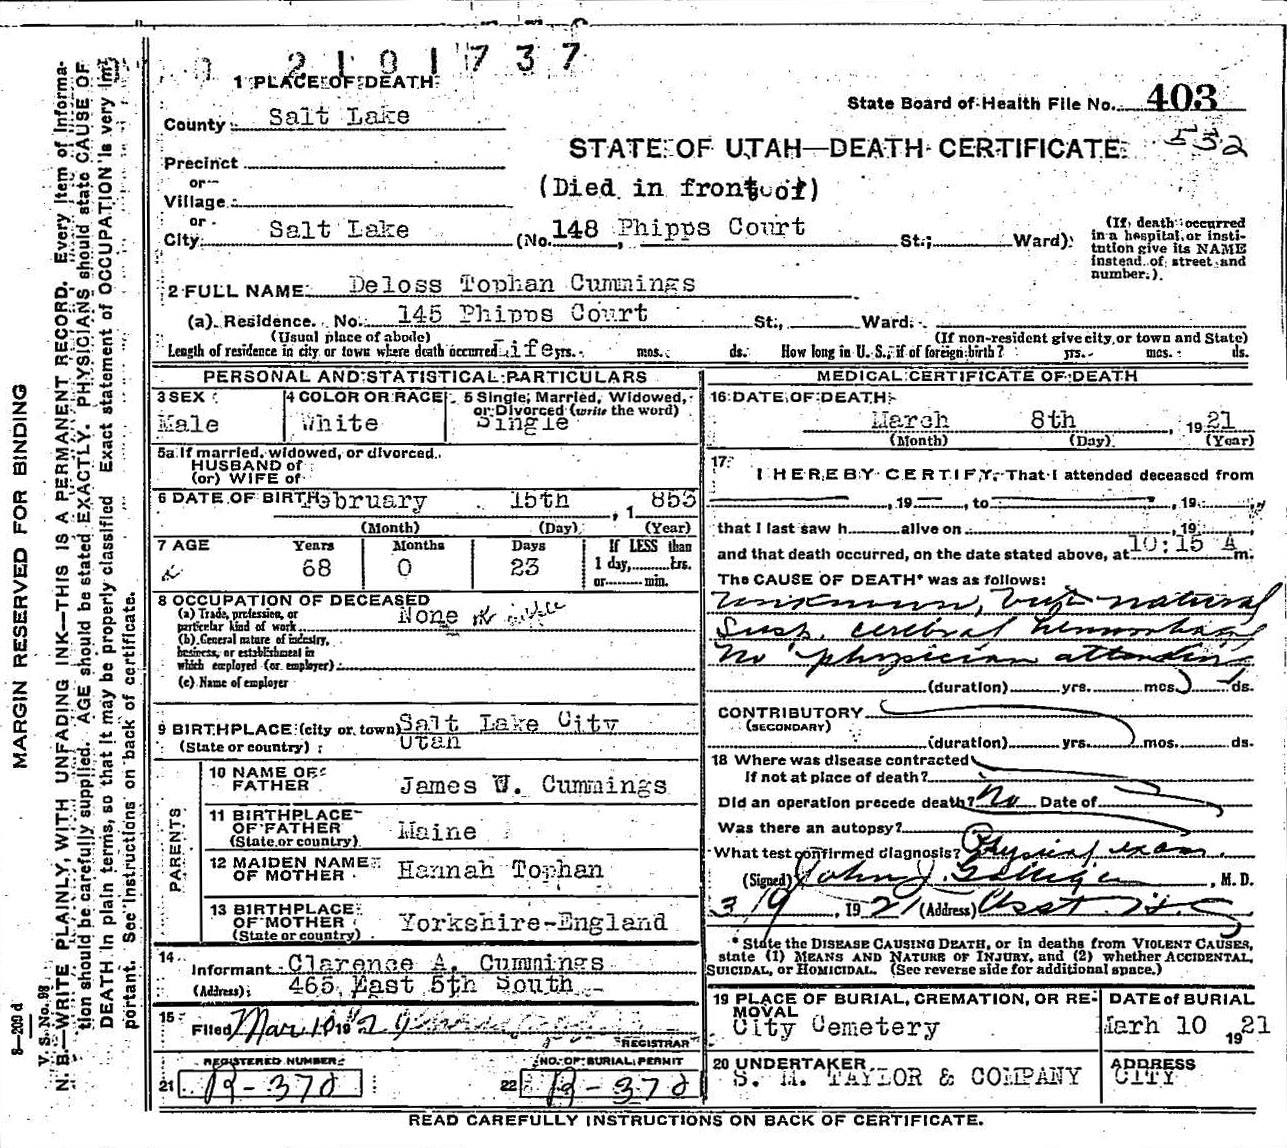 2101737
1 PLACE OF DEATH
State Board of Health File No. 403
County Salt Lake
532
STATE OF UTAH—DEATH CERTIFICATE
Precinct
or
(Died in front of)
Village
or
City Salt Lake (No. 148 Phipps Court St.; Ward)
(If death occurred in a hospital or institution give its NAME instead of street and number.)
2 FULL NAME Deloss Tophan Cummings
(a) Residence. No. 145 Phipps Court St., Ward.
(Usual place of abode) (If non-resident give city or town and State)
Length of residence in city or town where death occurred Life yrs. mos. ds. How long in U. S., if of foreign birth? yrs. mos. ds.
PERSONAL AND STATISTICAL PARTICULARS
3 SEX Male
4 COLOR OR RACE White
5 Single, Married, Widowed, or Divorced (write the word) Single
5a If married, widowed, or divorced
HUSBAND of
(or) WIFE of
6 DATE OF BIRTH February 15th, 1853
(Month) (Day) (Year)
7 AGE Years 68 Months 0 Days 23
If LESS than 1 day, hrs. or min.
8 OCCUPATION OF DECEASED
(a) Trade, profession, or particular kind of work None
(b) General nature of industry, business, or establishment in which employed (or employer)
(c) Name of employer
9 BIRTHPLACE (city or town) Salt Lake City
(State or country) Utah
PARENTS
10 NAME OF FATHER James W. Cummings
11 BIRTHPLACE OF FATHER (State or country) Maine
12 MAIDEN NAME OF MOTHER Hannah Tophan
13 BIRTHPLACE OF MOTHER (State or country) Yorkshire-England
14 Informant Clarence A. Cummings
(Address) 465 East 5th South
15 Filed Mar 10 192
REGISTRAR
REGISTERED NUMBER
21 B-370
NO. OF BURIAL PERMIT
22 B-370
MEDICAL CERTIFICATE OF DEATH
16 DATE OF DEATH
March 8th, 1921
(Month) (Day) (Year)
17 I HEREBY CERTIFY, That I attended deceased from
, 19 , to , 19
that I last saw h alive on , 19
and that death occurred, on the date stated above, at 10:15 A m.
The CAUSE OF DEATH* was as follows:
Unknown, but natural
Susp. cerebral hemorrhage
No physician attending
(duration) yrs. mos. ds.
CONTRIBUTORY
(SECONDARY)
(duration) yrs. mos. ds.
18 Where was disease contracted
If not at place of death?
Did an operation precede death? No Date of
Was there an autopsy?
What test confirmed diagnosis? Physical exam.
(Signed) John J. Galligan, M. D.
3/9, 1921 (Address) Asst. H. C.
* State the DISEASE CAUSING DEATH, or in deaths from VIOLENT CAUSES,
state (1) MEANS AND NATURE OF INJURY, and (2) whether ACCIDENTAL,
SUICIDAL, or HOMICIDAL. (See reverse side for additional space.)
19 PLACE OF BURIAL, CREMATION, OR REMOVAL
City Cemetery
DATE of BURIAL
Marh 10 1921
20 UNDERTAKER
S. M. TAYLOR & COMPANY
ADDRESS
CITY
READ CAREFULLY INSTRUCTIONS ON BACK OF CERTIFICATE.
MARGIN RESERVED FOR BINDING
8—209 d
V. S. No. 98
N. B.—WRITE PLAINLY, WITH UNFADING INK—THIS IS A PERMANENT RECORD. Every item of informa-
tion should be carefully supplied. AGE should be stated EXACTLY. PHYSICIANS should state CAUSE OF
DEATH in plain terms, so that it may be properly classified. Exact statement of OCCUPATION is very im-
portant. See instructions on back of certificate.